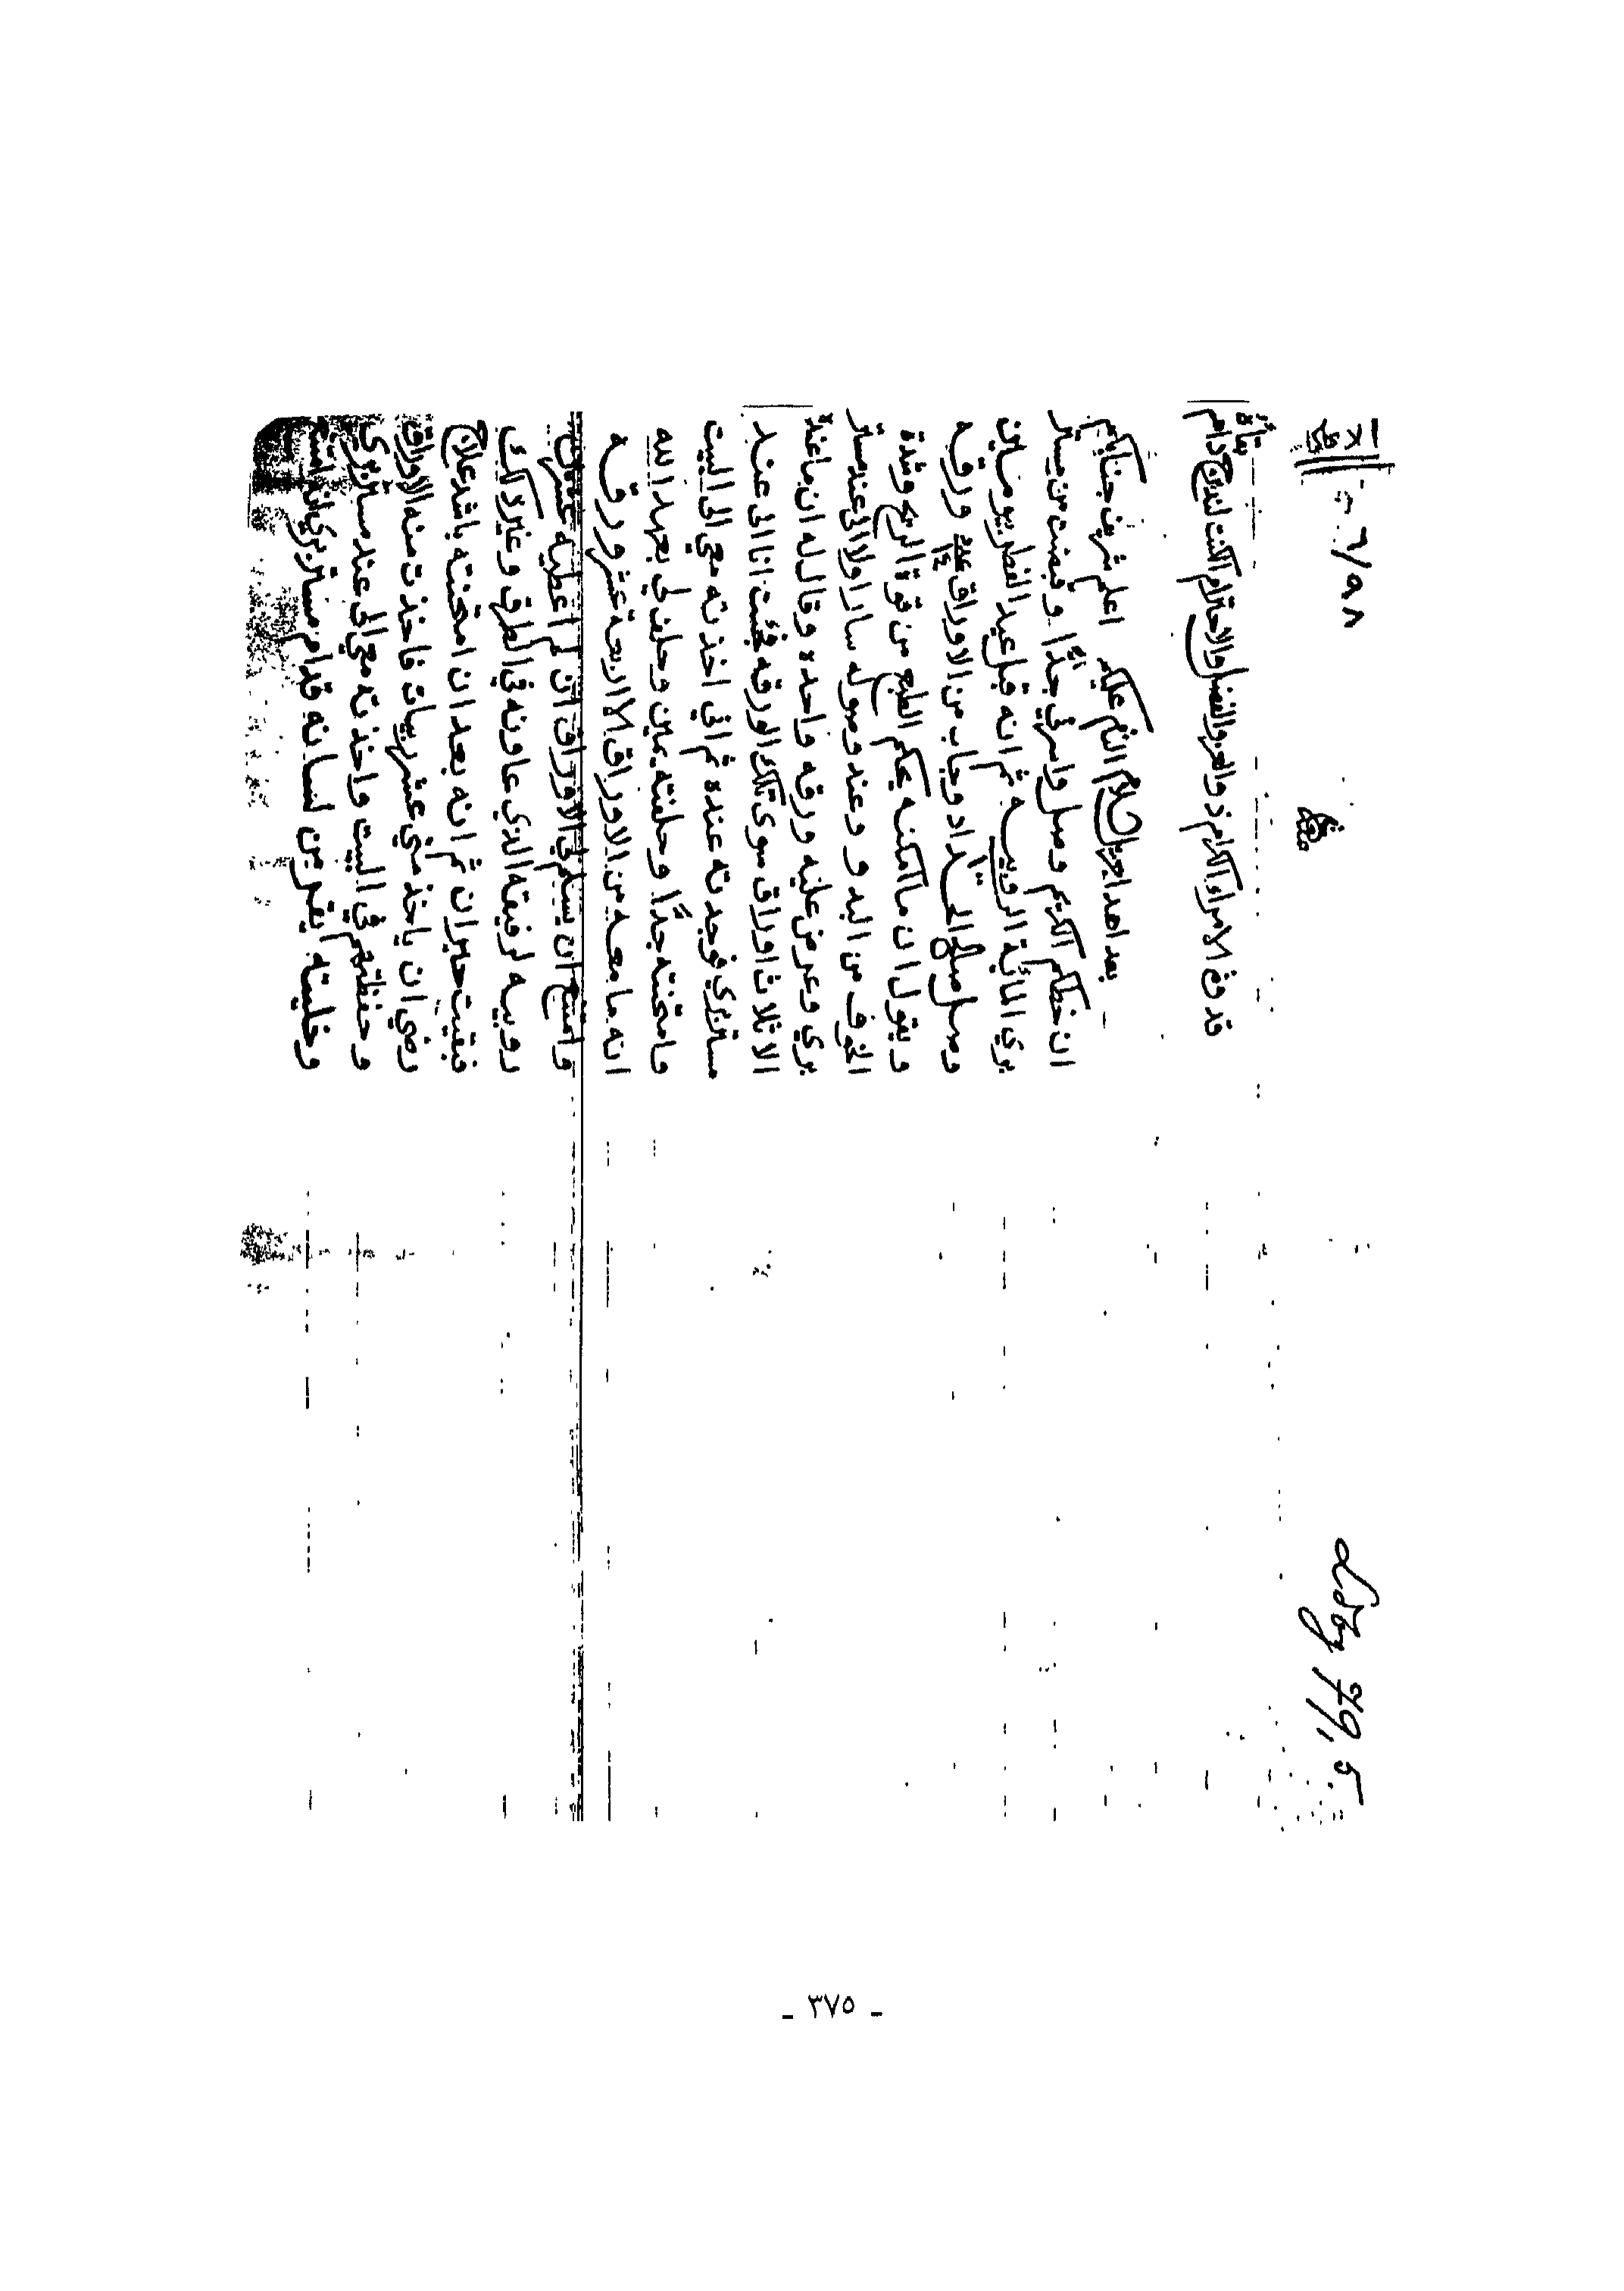 ٦/٥٨
قدوة الامراء الكرام ذو العز والفضل والاحترام الكنت لندبرج دام
بقاؤه
بعد اهداء جزيل السلام التام عليكم اعلم شريف جنابكم
ان خطكم الكريم وصل واسرني جدًا وقبضت من مستر
بري المائة الروبيه ثم انه قبل عيد الفطر بيومين
وصل صالح الحداد وجاب من الاوراق ورقه
ويقول ان ما امكنه يحكم الطبع من قوة الريح وشدة
الخوف من البدو وعند وصوله سار اولا الى عند مستر
بري وعرض عليه ورقه واحده وقال له ان ما عنده
الا ثلاث اوراق سوى تلك الورقه فجئت انا الى عند
مستر بري فوجدته عنده ثم اني اخذته معي الى البيت
وامتحنته جدًا وحلفته يمين وحلف لي بعهد الله
انه ما معه من الاوراق الا اربعة عشر ورقه
وامتنع ان يسلم لي الاوراق ان لم اعطيه عشرين
روبيه لرفيقه الذي عاونه في الطرق وغير ذلك
فبقيت حيران ثم انه بعد ان امتحنته باشد علاج
رضي ان ياخذ مني عشر ربيات فاخذت منه الاوراق
وحفظتهم في البيت واخذته معي الى عند مستر بري
وخليته يقر من لسانه قدام مستر بري انه
- ٣٧٥ -